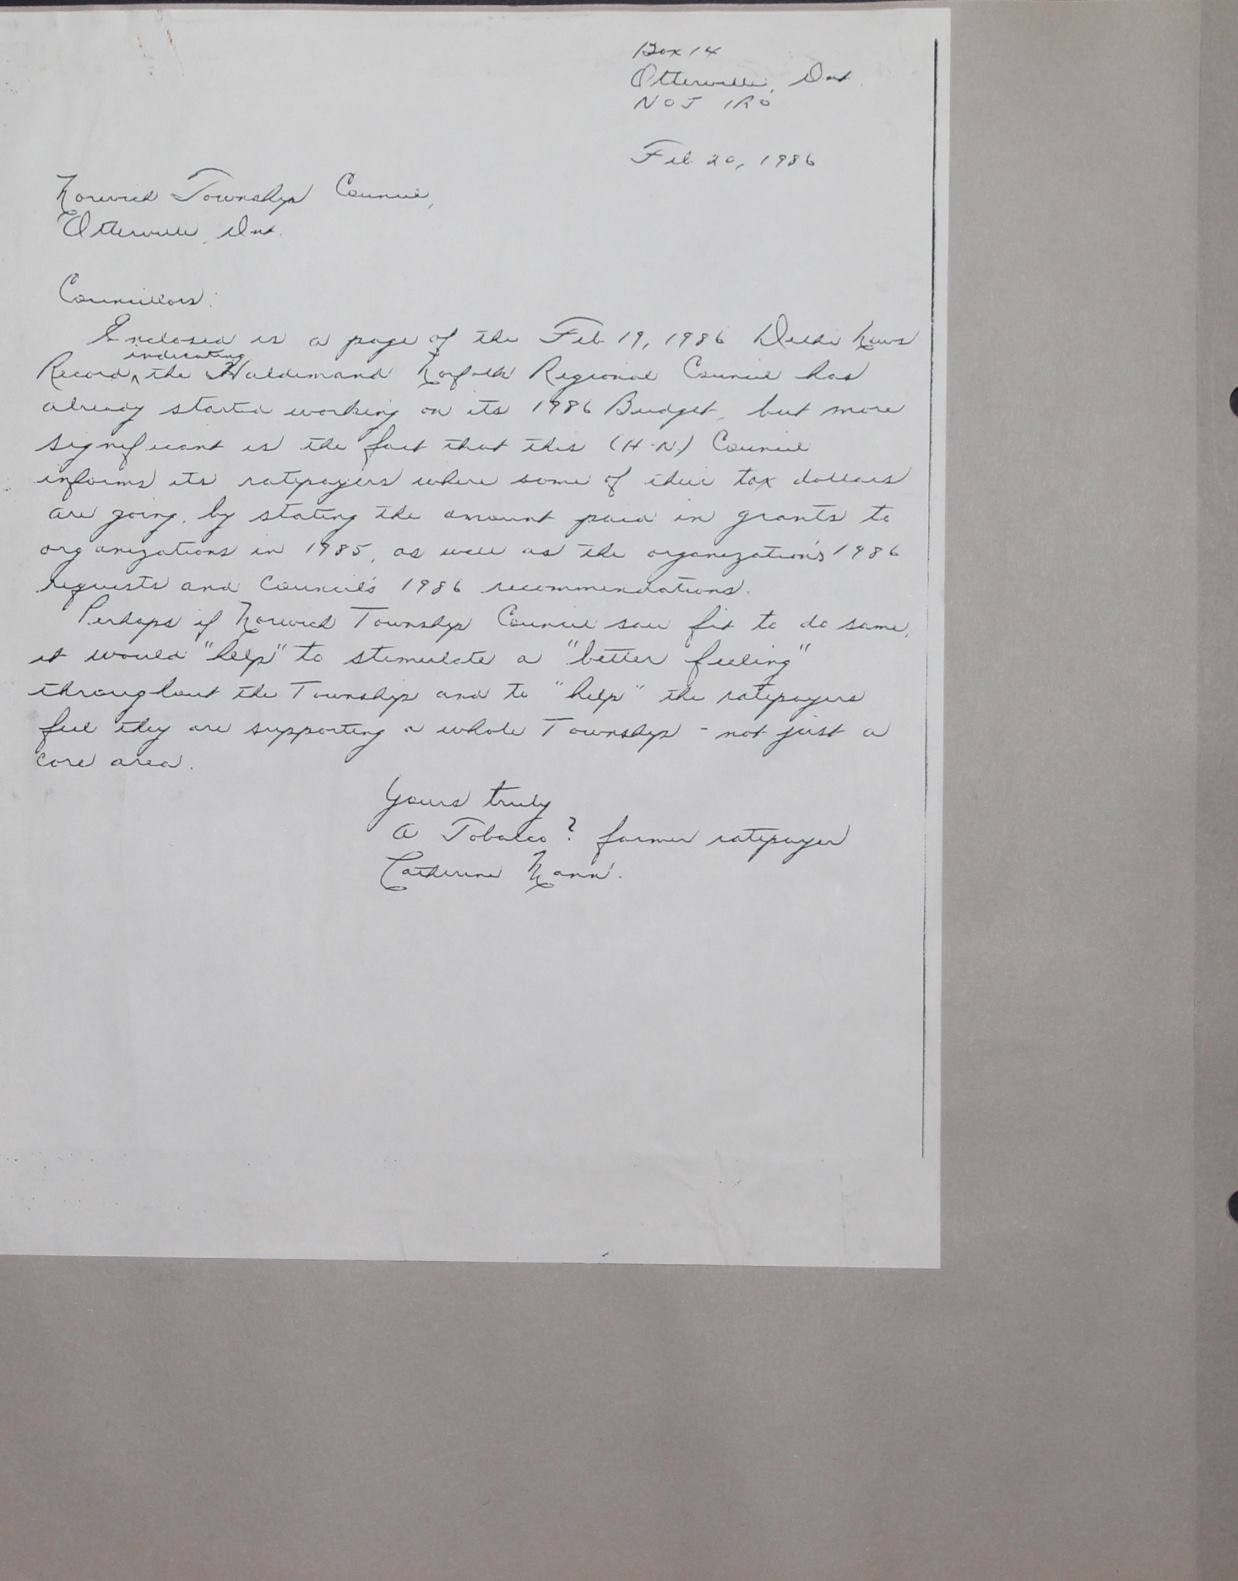 Box 14
Otterville, Ont.
N0J 1R0
Feb 20, 1986
Norwich Township Council,
Otterville, Ont.
Councillors:
Enclosed is a page of the Feb 19, 1986 Delhi News
indicating
Record, the Haldimand Norfolk Regional Council has
already started working on its 1986 Budget, but more
significant is the fact that this (H-N) Council
informs its ratepayers where some of their tax dollars
are going, by stating the amount paid in grants to
organizations in 1985, as well as the organization's 1986
requests and Council's 1986 recommendations.
Perhaps if Norwich Township Council saw fit to do same,
it would "help" to stimulate a "better feeling"
throughout the Township and to "help" the ratepayers
feel they are supporting a whole Township - not just a
core area.
Yours truly
A Tobacco? farmer ratepayer
Catherine Nann.